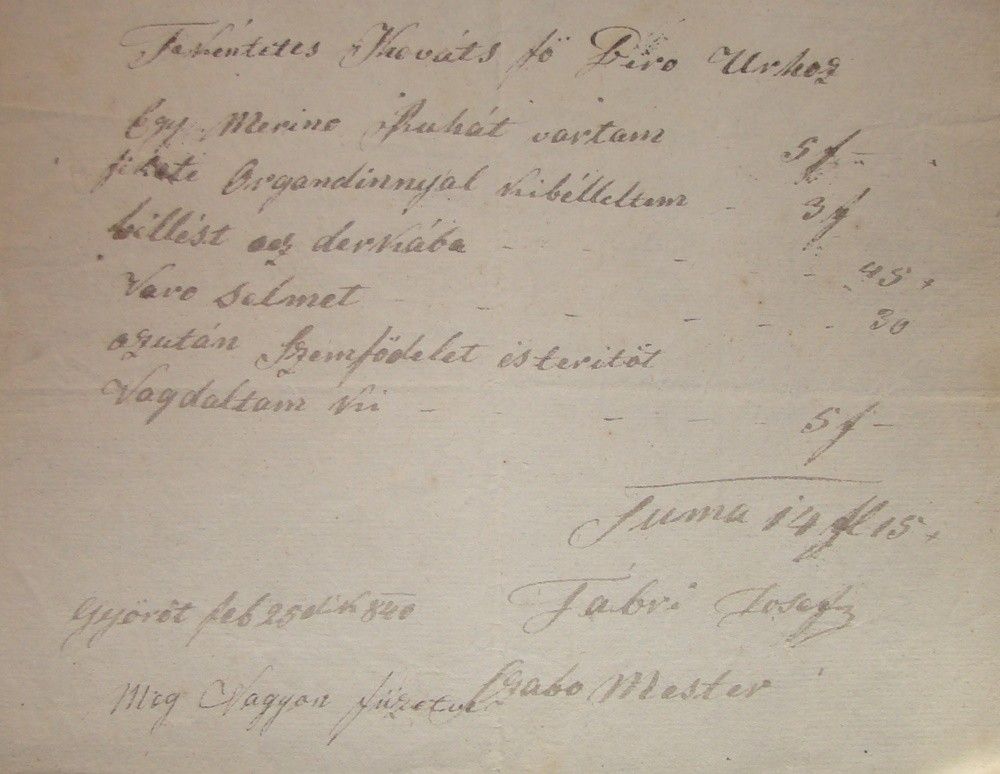 Tekéntetes Kováts fö Biro Urhoz
Egy Merino Ruhát vartam - 5 f -
fikete Organdinnyal kibélleltem - 3 f
billést az derkába - - - - - 45 x
Varo Selmet - - - - - - 30
azután Szemfödelet és teritöt
Vagdaltam ki - - - - 5 f -
Suma 14 fl 15 x
Györöt feb 25dik 840 Fábri Josef
Szabo Mester
Meg Vagyon fizetve